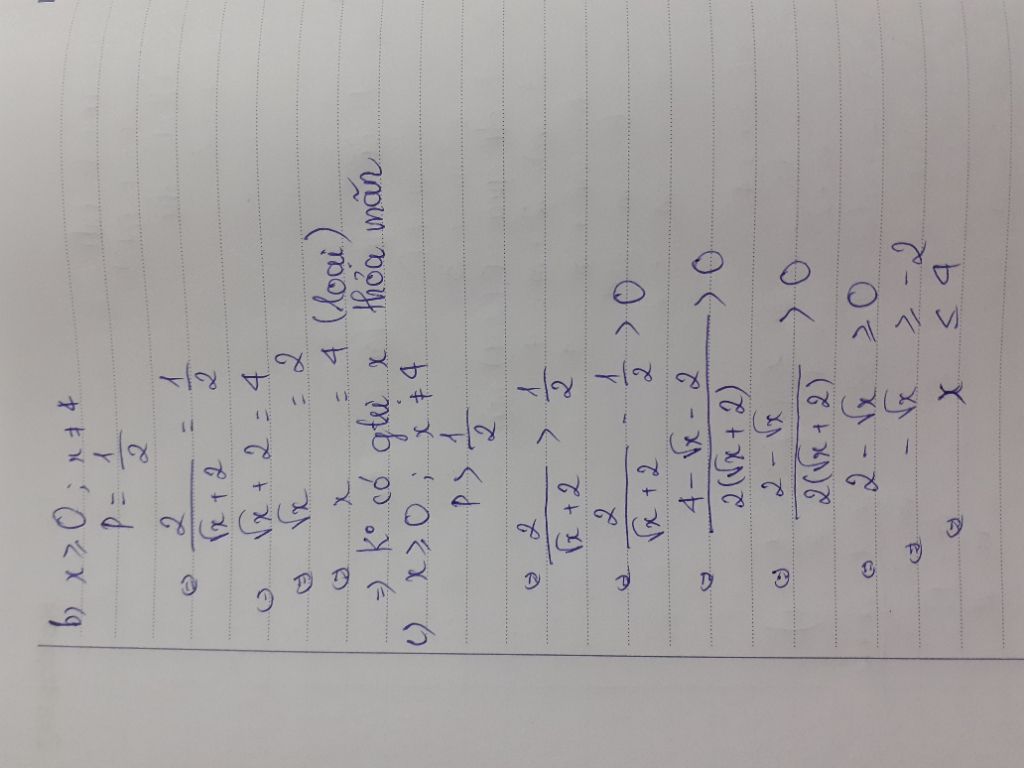 b) x ≥ 0 ; x ≠ 4
P = 1/2
⇔ 2/(√x + 2) = 1/2
⇔ √x + 2 = 4
⇔ √x = 2
⇔ x = 4 (loại)
⇒ K° có gtri x thỏa mãn
c) x ≥ 0 ; x ≠ 4
P > 1/2
⇔ 2/(√x + 2) > 1/2
⇔ 2/(√x + 2) - 1/2 > 0
⇔ (4 - √x - 2)/(2(√x + 2)) > 0
⇔ (2 - √x)/(2(√x + 2)) > 0
⇔ 2 - √x ≥ 0
⇔ - √x ≥ - 2
⇔ x ≤ 4